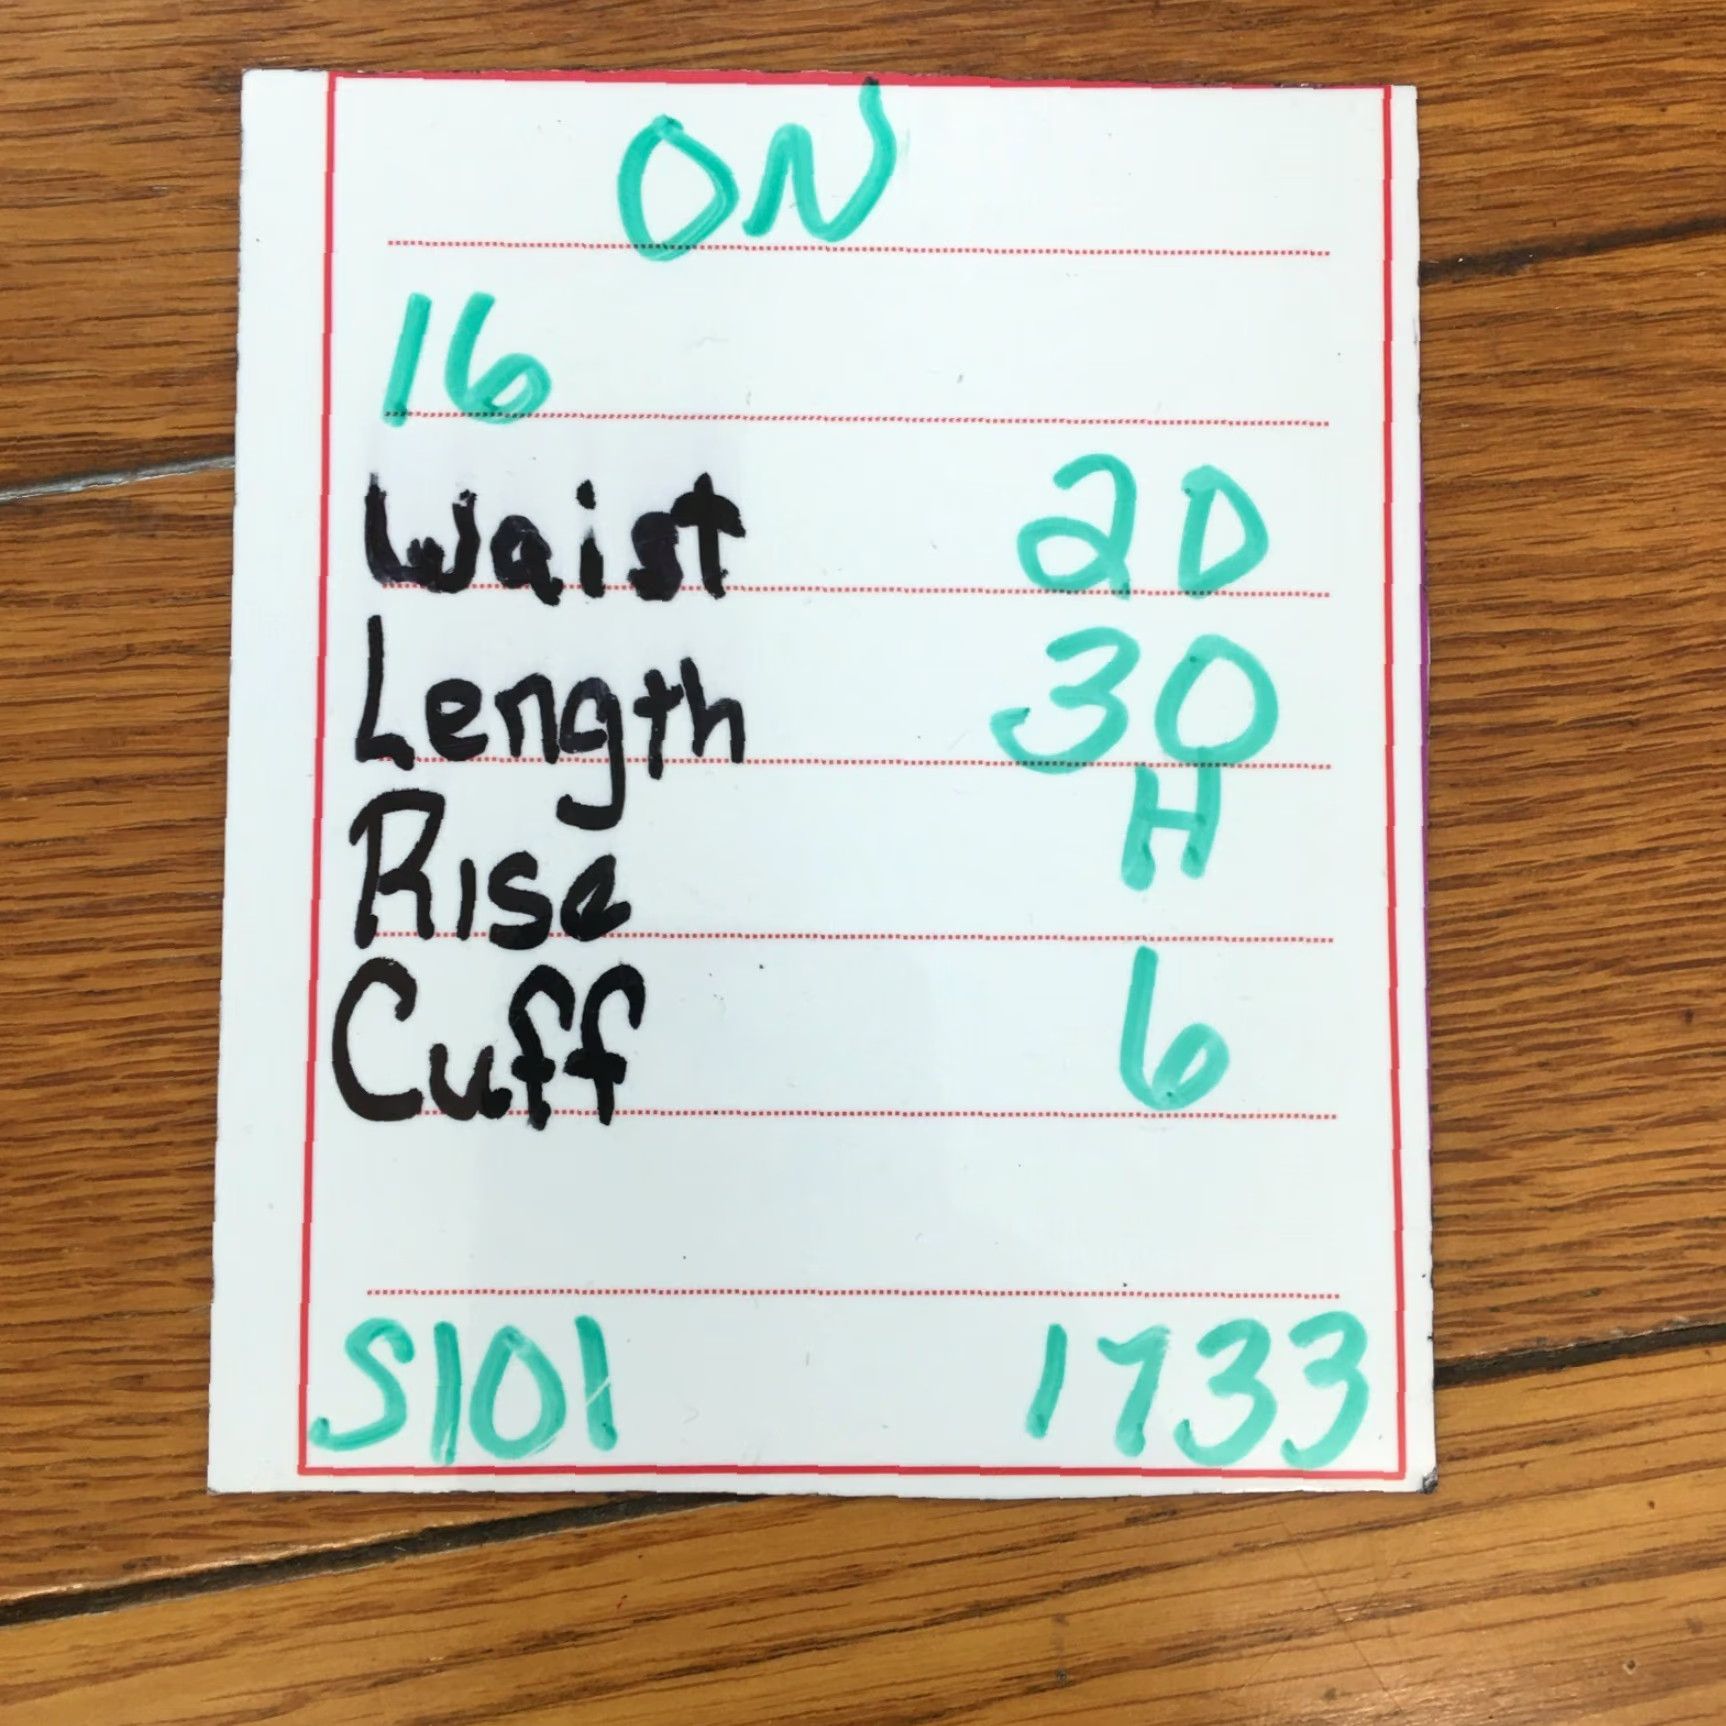 ON
16
Waist 20
Length 30
Rise H
Cuff 6
S101 1733